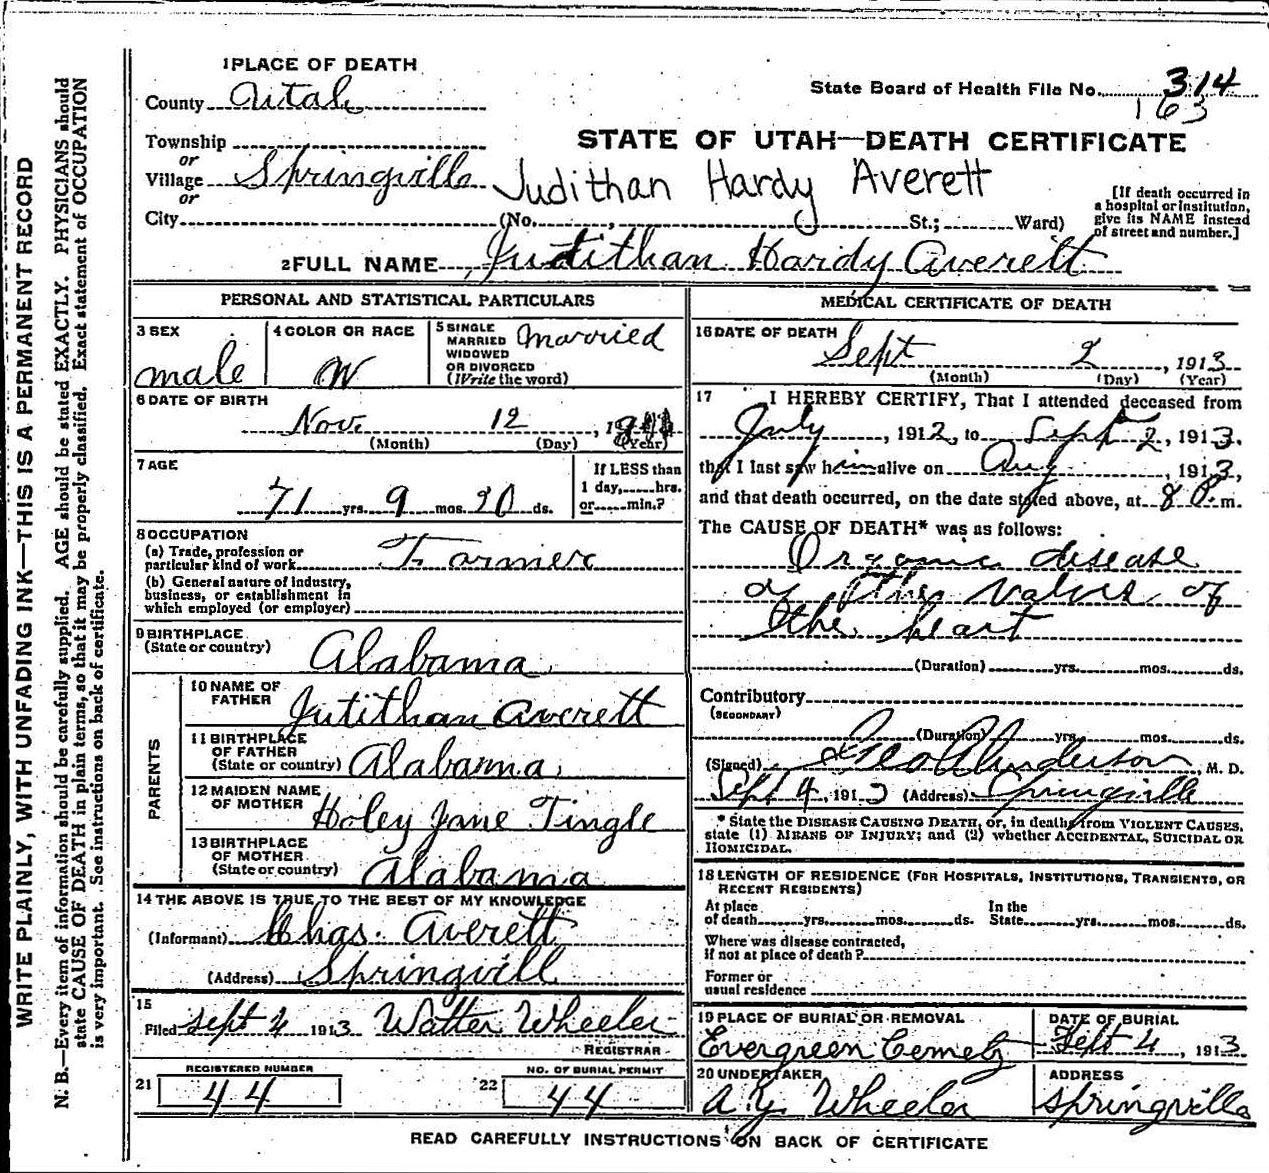 1 PLACE OF DEATH
County Utah
State Board of Health File No. 314
163
Township
or
Village Springville
or
City
STATE OF UTAH—DEATH CERTIFICATE
Judithan Hardy Averett
(No. , St.; Ward)
[If death occurred in
a hospital or institution,
give its NAME instead
of street and number.]
2 FULL NAME Jutithan Hardy Averett
PERSONAL AND STATISTICAL PARTICULARS
3 SEX
male
4 COLOR OR RACE
W
5 SINGLE
MARRIED
WIDOWED
OR DIVORCED
(Write the word)
Married
6 DATE OF BIRTH
Nov. 12
(Month) (Day) (Year)
7 AGE
71 yrs. 9 mos. 20 ds.
If LESS than
1 day,......hrs.
or......min.?
8 OCCUPATION
(a) Trade, profession or
particular kind of work Farmer
(b) General nature of industry,
business, or establishment in
which employed (or employer)
9 BIRTHPLACE
(State or country) Alabama
PARENTS
10 NAME OF
FATHER Jutithan Averett
11 BIRTHPLACE
OF FATHER
(State or country) Alabama
12 MAIDEN NAME
OF MOTHER Holey Jane Tingle
13 BIRTHPLACE
OF MOTHER
(State or country) Alabama
14 THE ABOVE IS TRUE TO THE BEST OF MY KNOWLEDGE
(Informant) Chas. Averett
(Address) Springvill
15
Filed Sept 4 1913 Walter Wheeler
REGISTRAR
21 REGISTERED NUMBER
44
22 NO. OF BURIAL PERMIT
44
MEDICAL CERTIFICATE OF DEATH
16 DATE OF DEATH
Sept 2, 1913
(Month) (Day) (Year)
17 I HEREBY CERTIFY, That I attended deceased from
July, 1912, to Sept 2, 1913.
that I last saw him alive on Aug 1913,
and that death occurred, on the date stated above, at 8 P. m.
The CAUSE OF DEATH* was as follows:
Organic disease
of the valves of
the heart
(Duration) yrs. mos. ds.
Contributory
(SECONDARY)
(Duration) yrs. mos. ds.
(Signed) Geo A Anderson, M. D.
Sept 4, 1913 (Address) Springville
* State the DISEASE CAUSING DEATH, or, in deaths from VIOLENT CAUSES,
state (1) MEANS OF INJURY; and (2) whether ACCIDENTAL, SUICIDAL OR
HOMICIDAL.
18 LENGTH OF RESIDENCE (FOR HOSPITALS, INSTITUTIONS, TRANSIENTS, OR
RECENT RESIDENTS)
At place
of death yrs. mos. ds.
In the
State yrs. mos. ds.
Where was disease contracted,
if not at place of death?
Former or
usual residence
19 PLACE OF BURIAL OR REMOVAL
Evergreen Cemety
DATE OF BURIAL
Sept 4, 1913
20 UNDERTAKER
A. Y. Wheeler
ADDRESS
Springville
READ CAREFULLY INSTRUCTIONS ON BACK OF CERTIFICATE
WRITE PLAINLY, WITH UNFADING INK—THIS IS A PERMANENT RECORD
N. B.—Every item of information should be carefully supplied. AGE should be stated EXACTLY. PHYSICIANS should
state CAUSE OF DEATH in plain terms, so that it may be properly classified. Exact statement of OCCUPATION
is very important. See instructions on back of certificate.